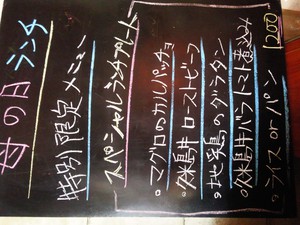 母の日 ランチ
特別限定メニュー
スペシャルランチプレート
。マグロのカルパッチョ
。糸島牛ローストビーフ
。地鶏のグラタン
。糸島牛バラトマト煮込み
。ライス or パン
1200